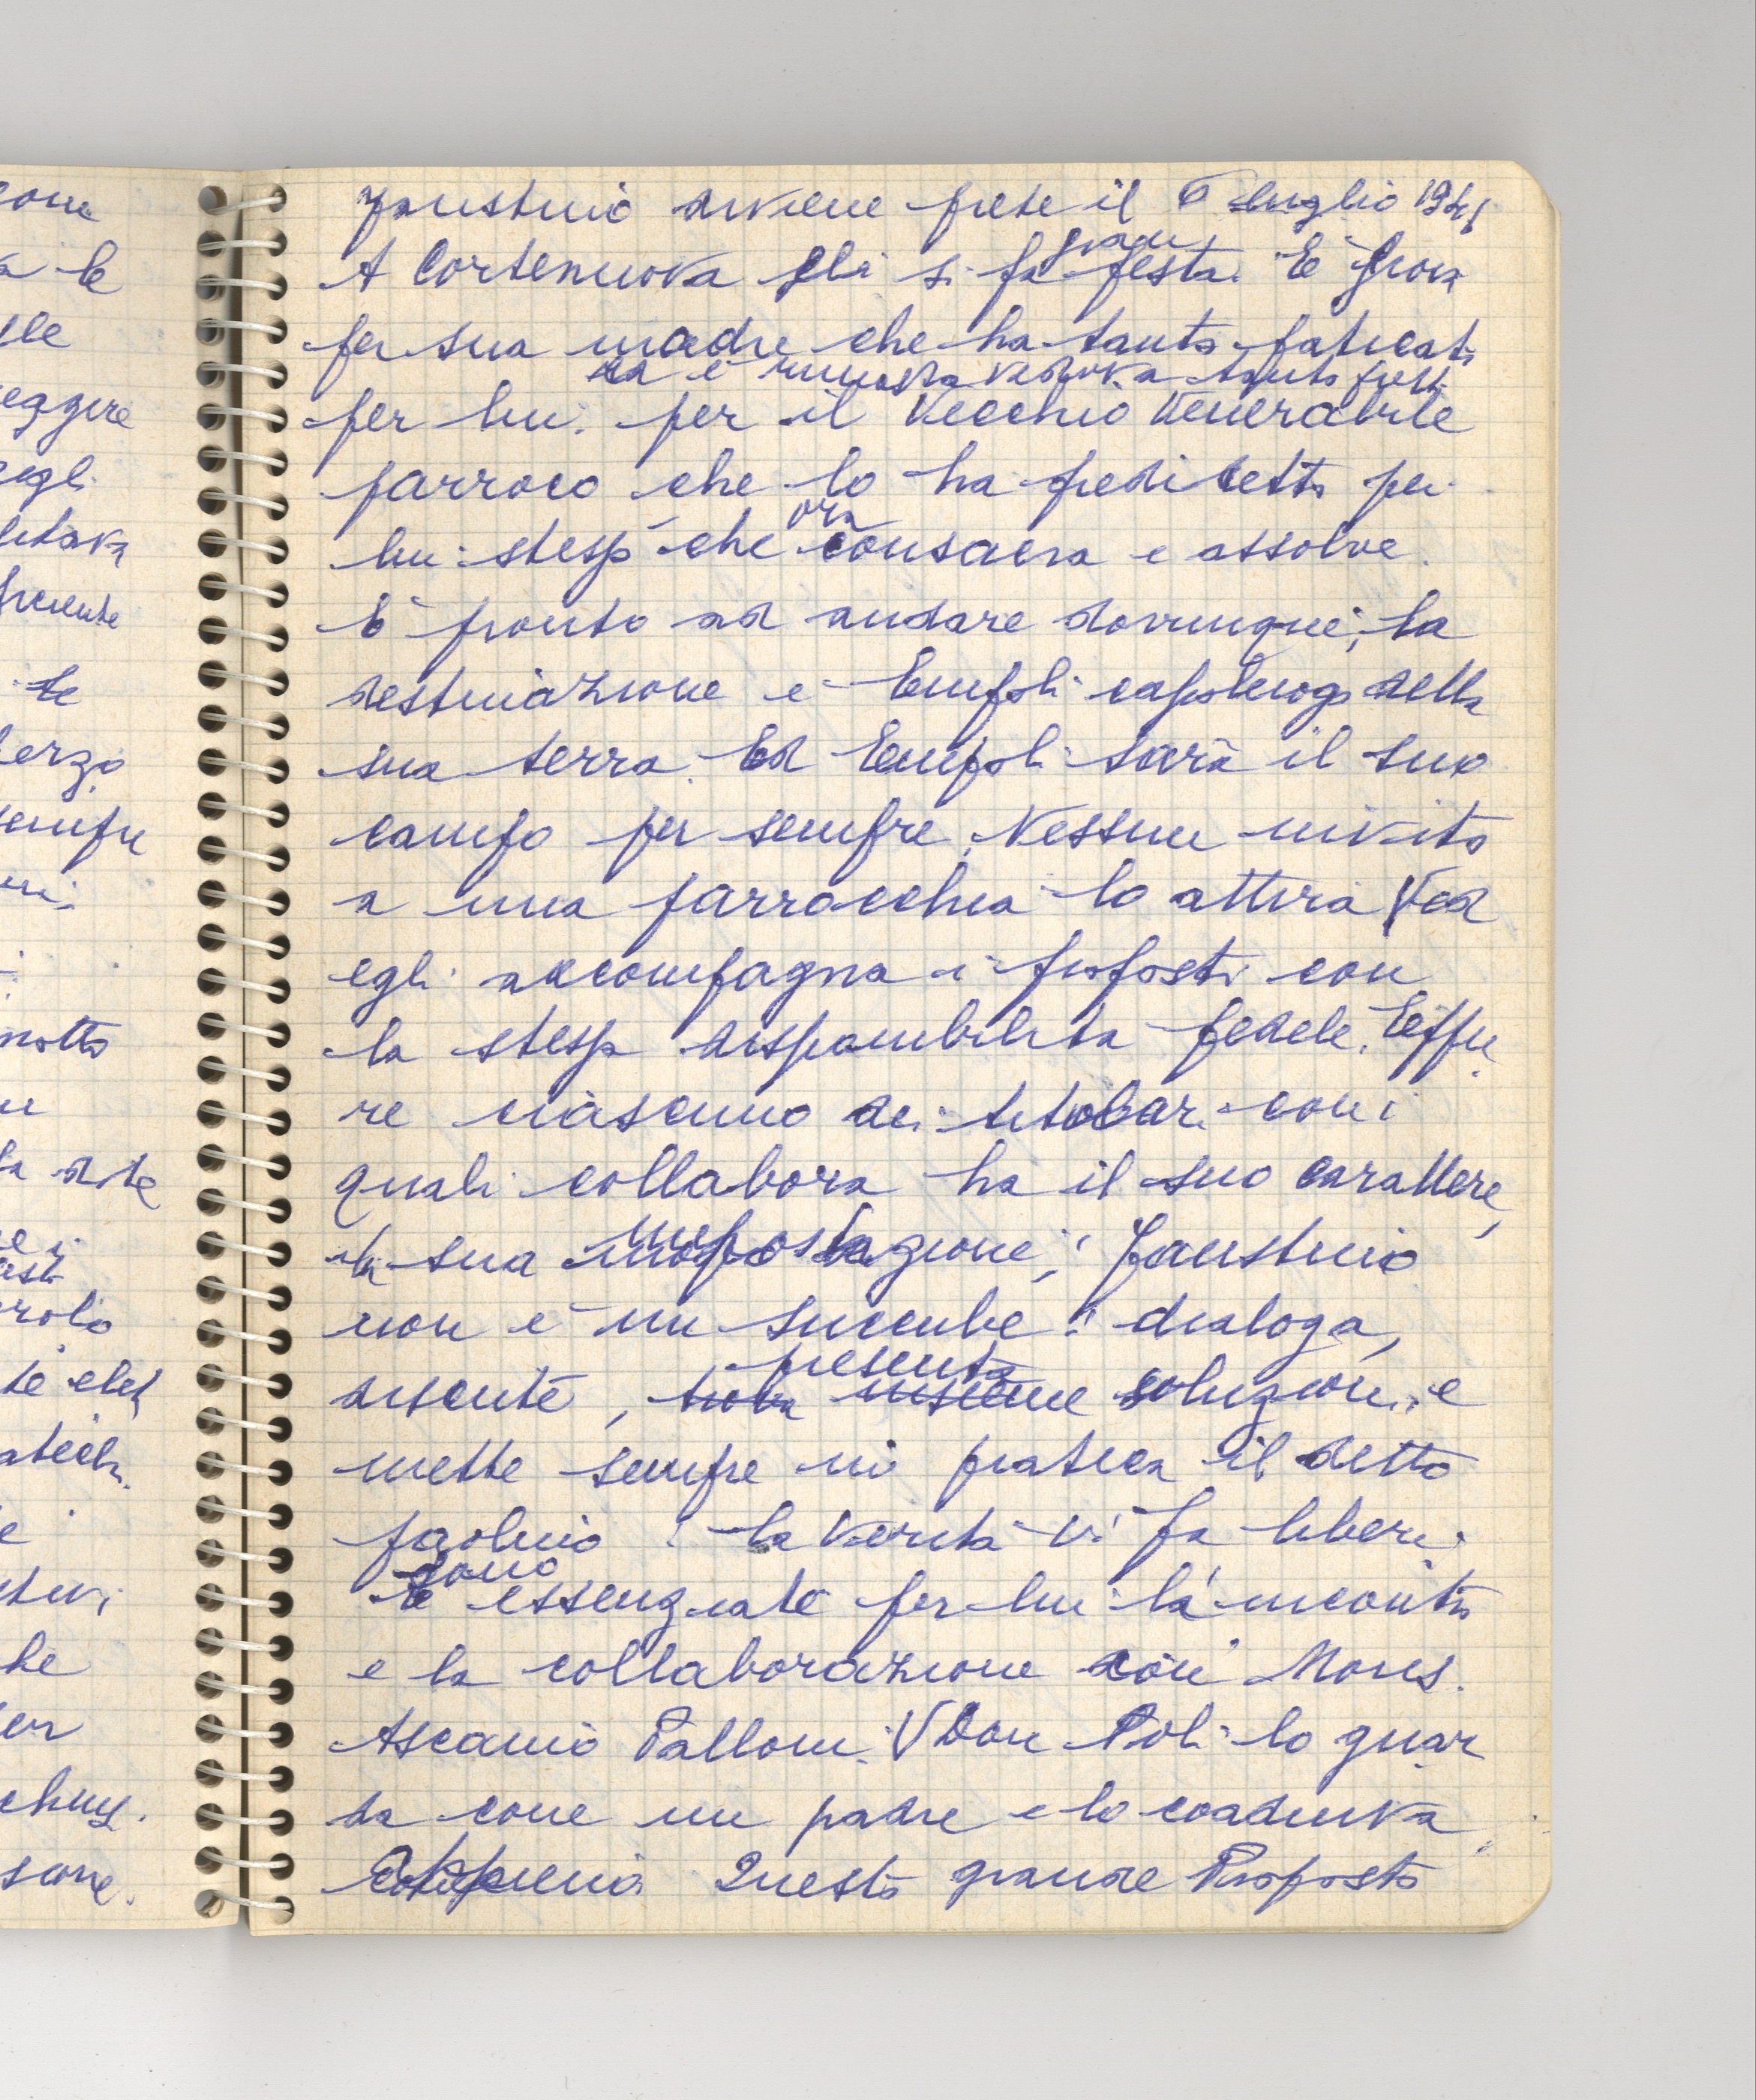 Faustino diviene prete il 6 luglio 1941
A Cortenuova gli si fa gran festa. È gioia
per sua madre che ha tanto faticato
da è rimasta vedova tanto presto
per lui. per il Vecchio Venerabile
parroco che lo ha prediletto per
lui stesso che ora consacra e assolve.
È pronto ad andare dovunque; la
destinazione è Empoli capoluogo della
sua terra. Ed Empoli sarà il suo
campo per sempre. Nessun invito
a una parrocchia lo attira Ved
egli accompagna i proposti con
la stessa disponibilità fedele. Eppu
re ciascuno dei titolari con i
quali collabora ha il suo carattere,
la sua impostazione; Faustino
non è un succube: dialoga,
discute, trova insieme presenta soluzioni, e
mette sempre in pratica il detto
paolino: la verità vi fa liberi.
Sono essenziale per lui l'incontro
e la collaborazione con Mons.
Ascanio Palloni. V Don Poli lo guar
da come un padre e lo coadiuva
Questo grande Proposto
come
a le
eggere
egli
te
erzo
notto
rolo
he
sone.